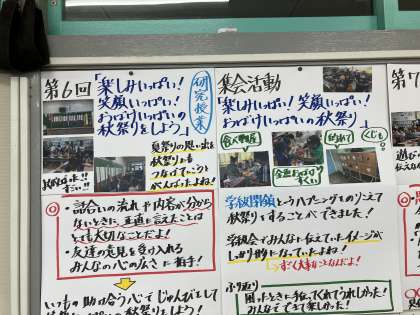 第6回
「楽しみいっぱい!
笑顔いっぱい!
おばけいっぱいの
秋祭りをしよう」
研究授業
夏祭りの思い出を
秋祭りにも
つなげていこうと
がんばったよね!
すごい!!
・話合いの流れや内容が分から
ないときに、正直に言えたことは
とても大切なことだよ!
・友達の意見を受け入れる
みんなの心の広さに拍手!
いつも助け合う心でじゅんびをして
集会活動
「楽しみいっぱい!笑顔いっぱい!
おばけいっぱいの秋祭り」
的あて
くじも
学校閉鎖というハプニングものりこえて
秋祭りをすることができました!
学級会でみんなに伝えていたイメージが
しっかり形になっていたよね!
すごく大事なことなんだよ!
ふり返り
困ったときに手伝ってくれてうれしかった!
みんなでできて楽しかった!
第7